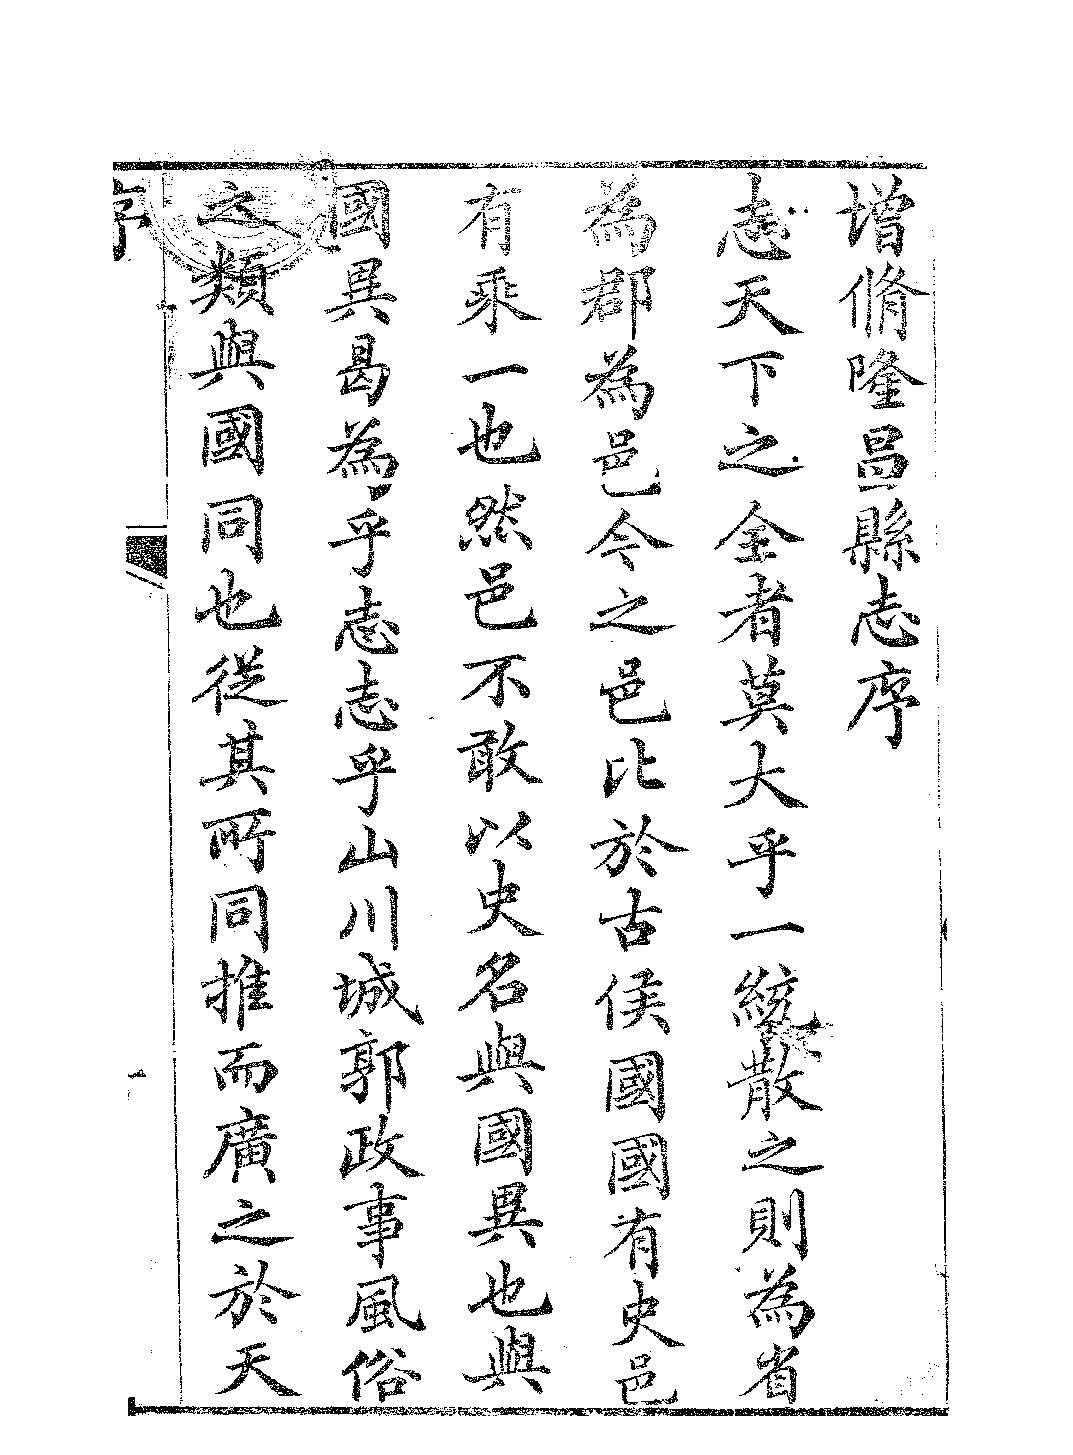 增脩隆昌縣志序
志天下之全者莫大乎一統散之則為省
為郡為邑今之邑比於古侯國國有史邑
有乘一也然邑不敢以史名與國異也與
國異曷為乎志志乎山川城郭政事風俗
之類與國同也從其所同推而廣之於天
序